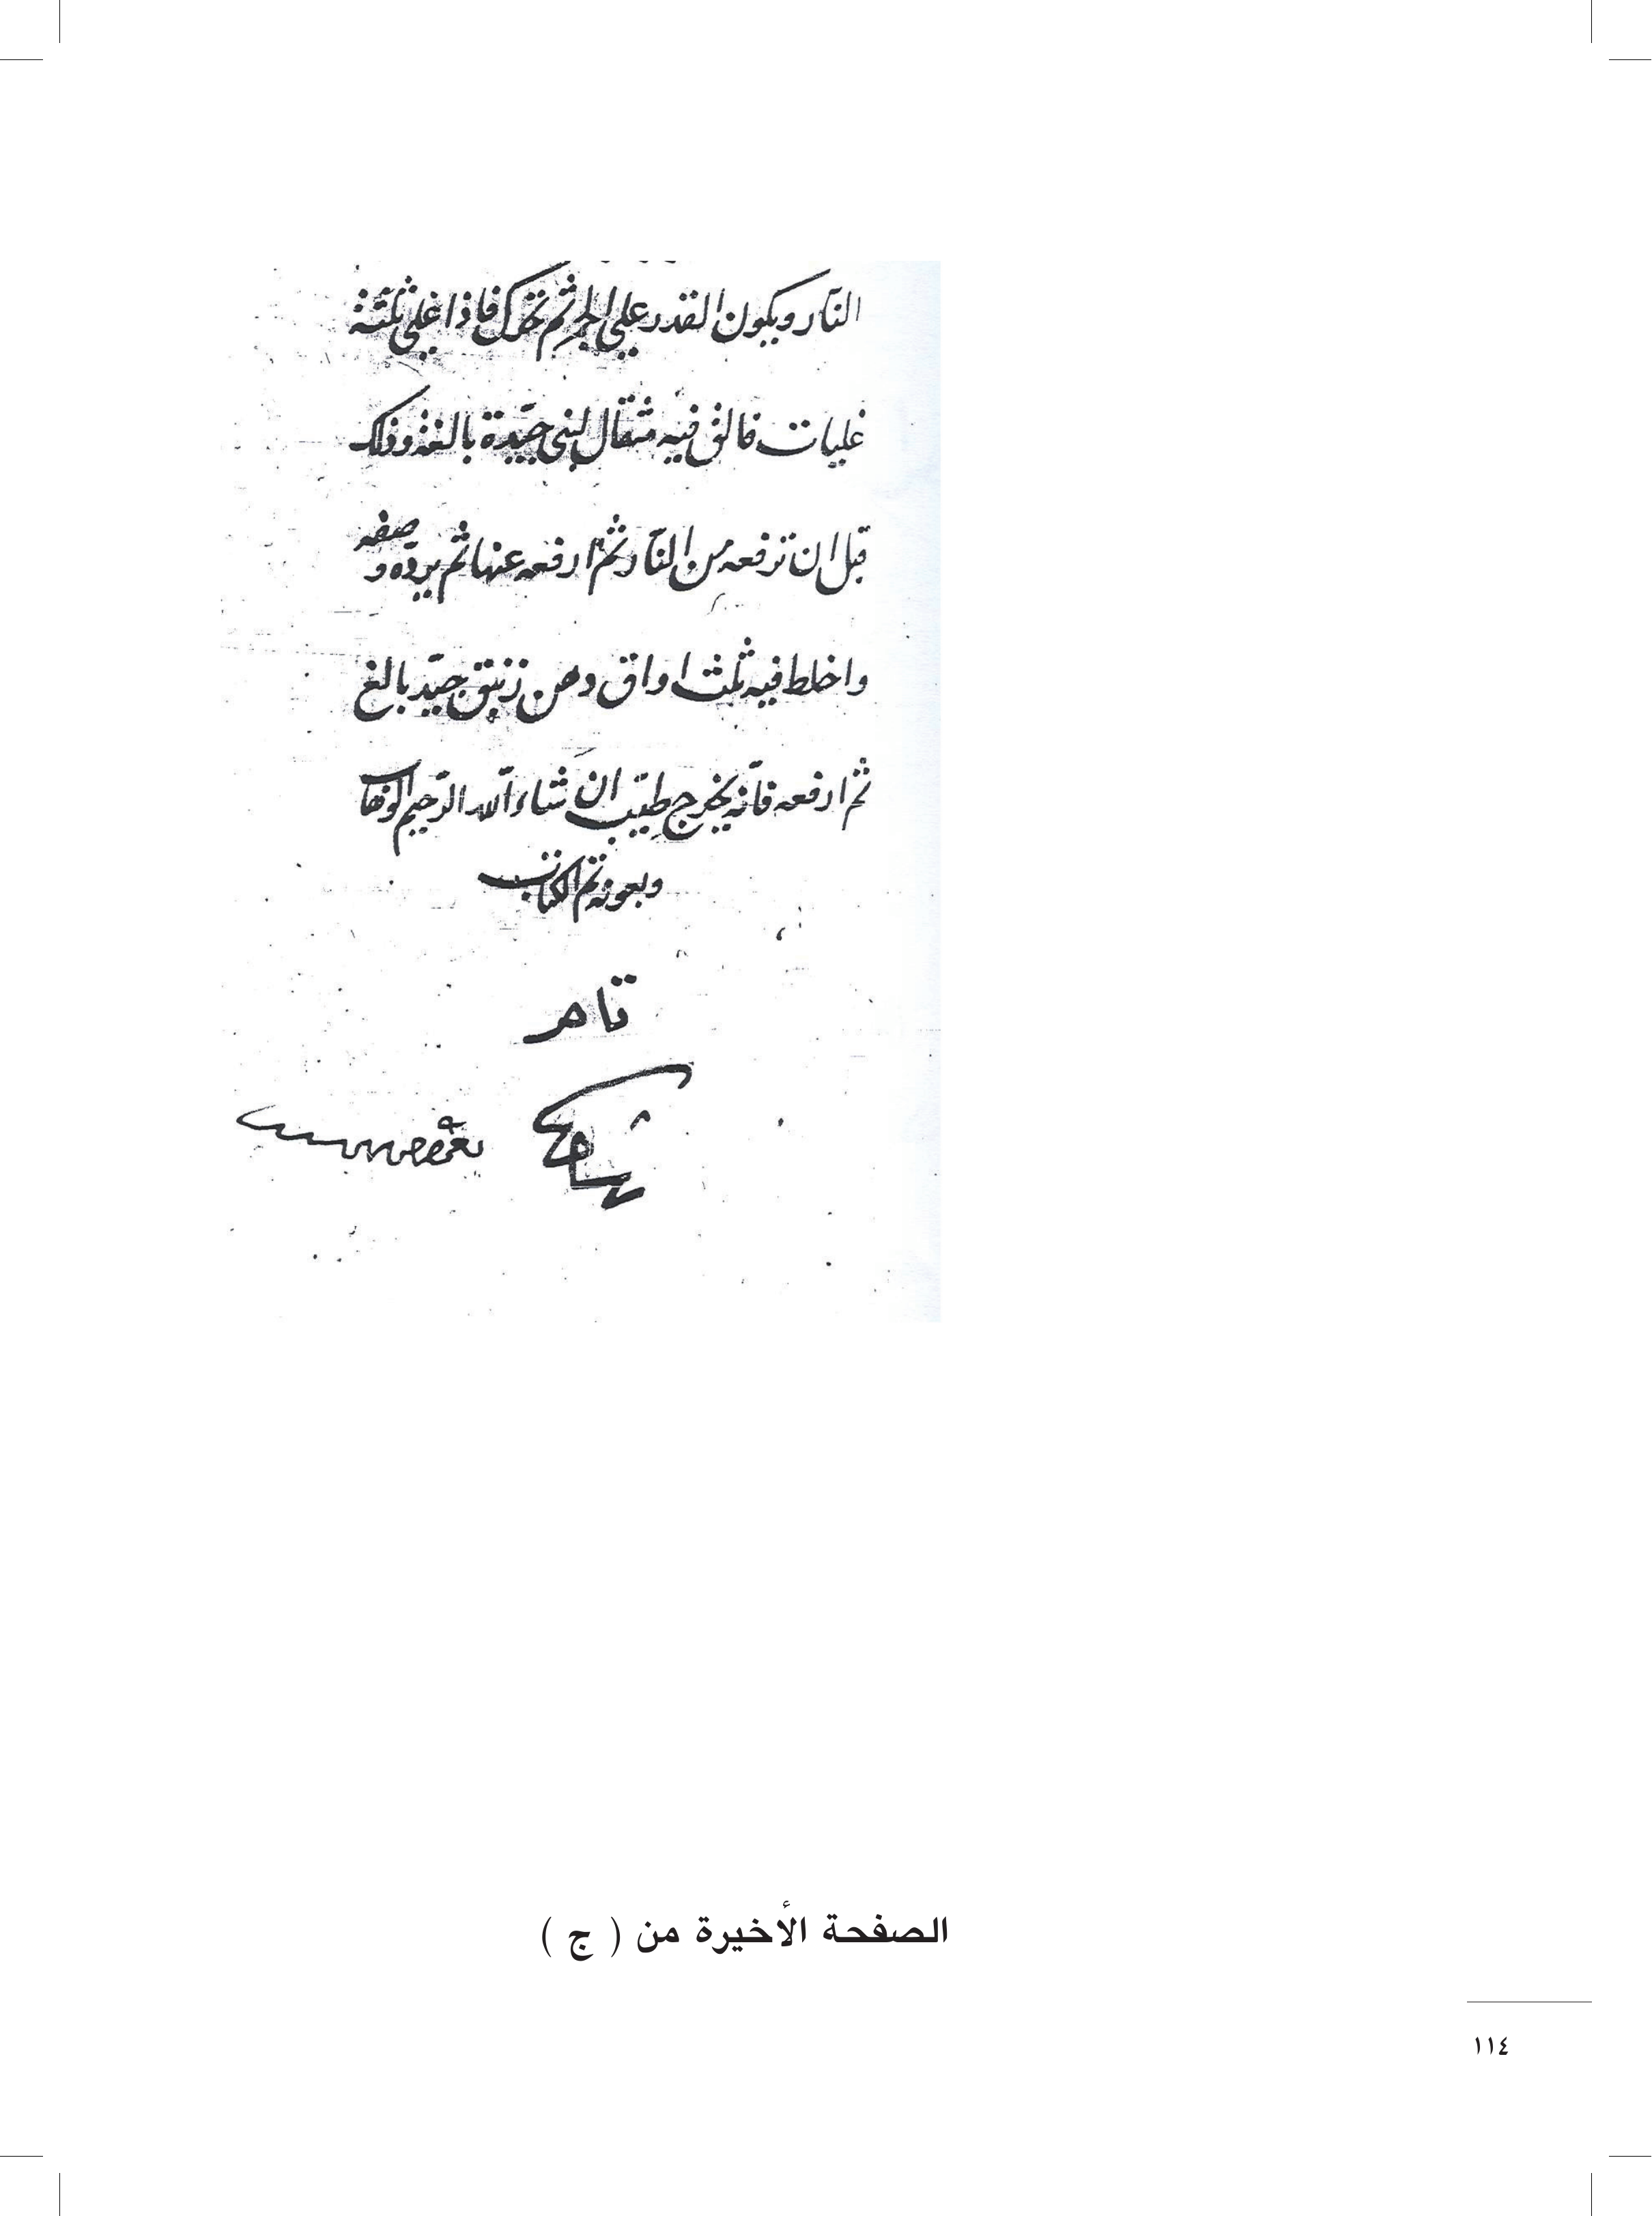 النآر ويكون القدر على الجمر ثم تحرك فاذا غلى ثلثة
غليات فالق فيه مثقال لبنى جيّدة بالغة وذلك
قبل ان ترفعه من النآر ثم ارفعه عنها ثم برّده و صفه
واخلط فيه ثلث اواق دهن زنبق جيّد بالغ
ثم ارفعه فانّه يخرج طيّب ان شاء الله الرّحيم الوهاب
وبعونه تم الكتاب
الصفحة الأخيرة من ( ج )
١١٤